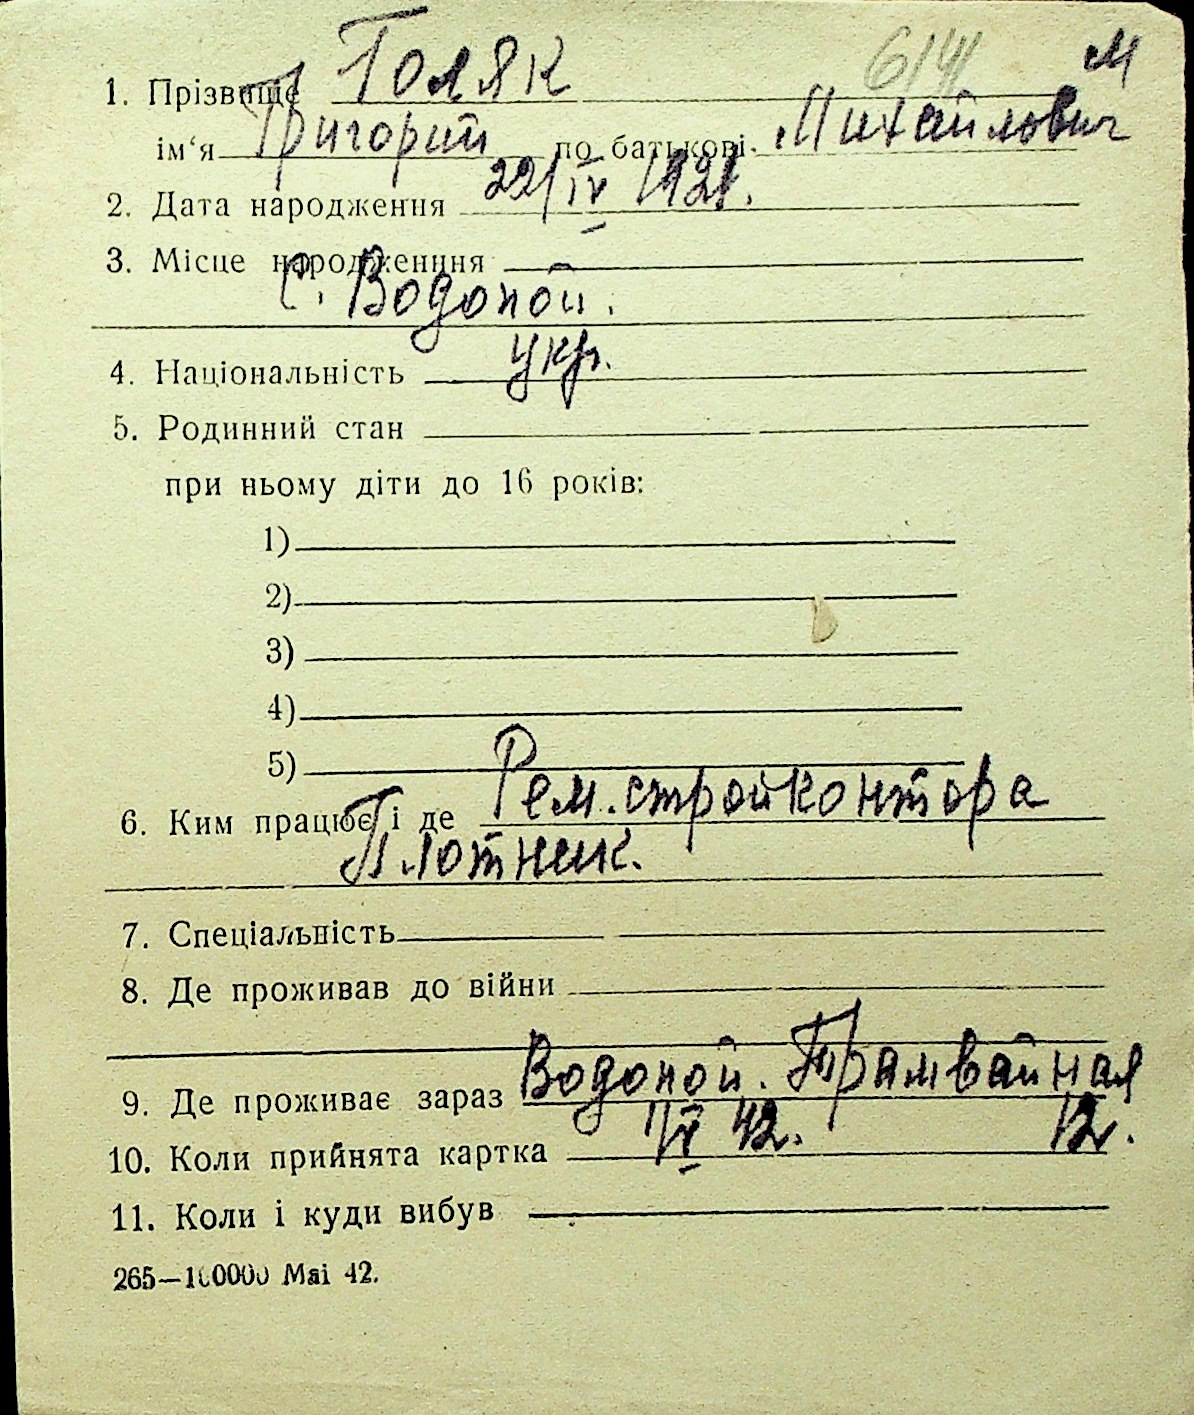 614 м
1. Прізвище Голяк
ім‘я Григорий по батькові Михайлович
2. Дата народження 22/IV 1921.
3. Місце народженння
С. Водопой.
4. Національність укр.
5. Родинний стан
при ньому діти до 16 років:
1)
2)
3)
4)
5)
6. Ким працює і де Рем. стройконтора
Плотник.
7. Спеціальність
8. Де проживав до війни
9. Де проживає зараз Водопой. Трамвайная
12.
10. Коли прийнята картка 42.
11. Коли і куди вибув
265—100000 Mai 42.